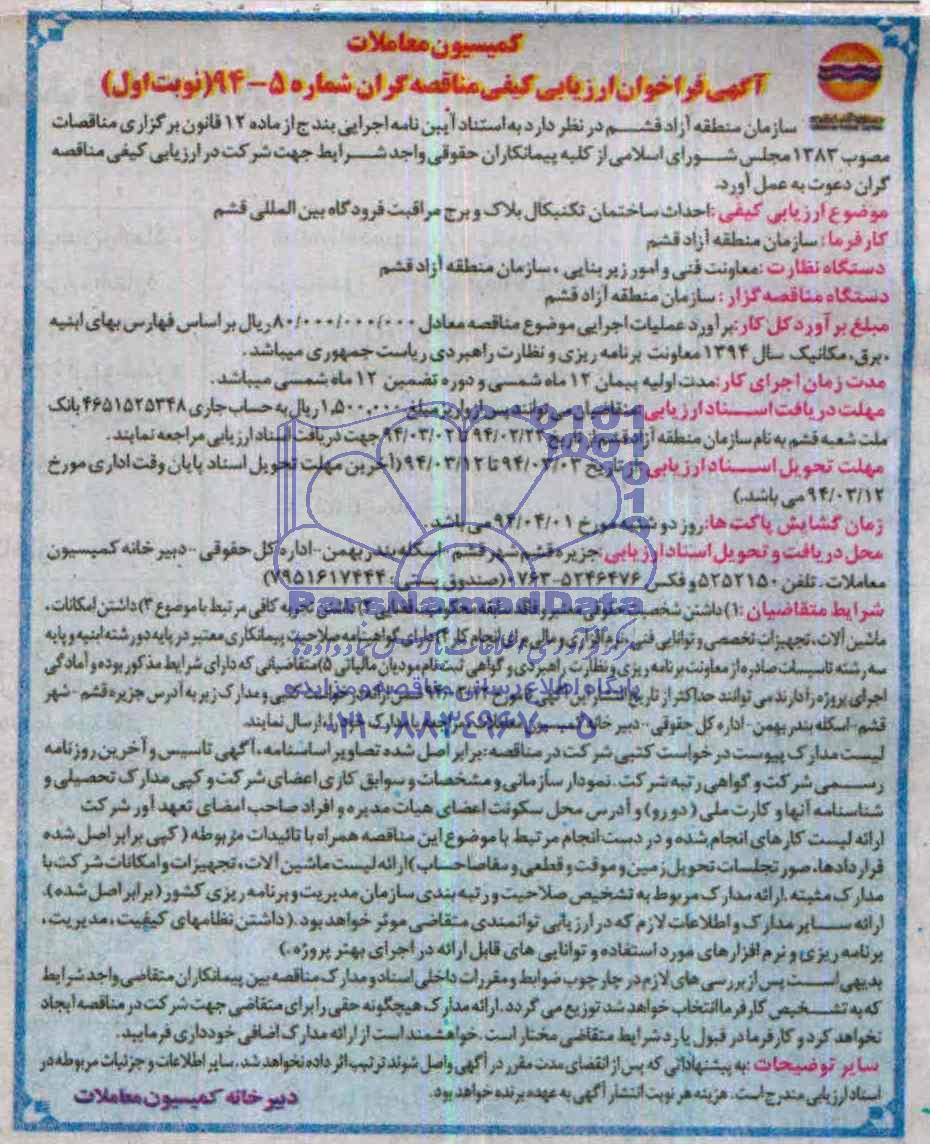 کمیسیون معاملات
آگهی فراخوان ارزیابی کیفی مناقصه گران شماره ۵-۹۴ (نوبت اول)
سازمان منطقه آزاد قشم در نظر دارد به استناد آیین نامه اجرایی بند ج از ماده ۱۲ قانون برگزاری مناقصات
مصوب ۱۳۸۳ مجلس شورای اسلامی از کلیه پیمانکاران حقوقی واجد شرایط جهت شرکت در ارزیابی کیفی مناقصه
گران دعوت به عمل آورد.
موضوع ارزیابی کیفی: احداث ساختمان تکنیکال بلاک و برج مراقبت فرودگاه بین المللی قشم
کارفرما: سازمان منطقه آزاد قشم
دستگاه نظارت: معاونت فنی و امور زیر بنایی، سازمان منطقه آزاد قشم
دستگاه مناقصه گزار: سازمان منطقه آزاد قشم
مبلغ برآورد کل کار: برآورد عملیات اجرایی موضوع مناقصه معادل ۸۰/۰۰۰/۰۰۰/۰۰۰ ریال بر اساس فهارس بهای ابنیه
، برق، مکانیک سال ۱۳۹۴ معاونت برنامه ریزی و نظارت راهبردی ریاست جمهوری میباشد.
مدت زمان اجرای کار: مدت اولیه پیمان ۱۲ ماه شمسی و دوره تضمین ۱۲ ماه شمسی میباشد.
مهلت دریافت اسناد ارزیابی: متقاضیان می توانند پس از واریز مبلغ ۱,۵۰۰,۰۰۰ ریال به حساب جاری ۴۶۵۱۵۲۵۳۴۸ بانک
ملت شعبه قشم به نام سازمان منطقه آزاد قشم از تاریخ ۹۴/۰۲/۲۳ تا ۹۴/۰۳/۰۲ جهت دریافت اسناد ارزیابی مراجعه نمایند.
مهلت تحویل اسناد ارزیابی: از تاریخ ۹۴/۰۳/۰۳ تا ۹۴/۰۳/۱۲ (آخرین مهلت تحویل اسناد پایان وقت اداری مورخ
۹۴/۰۳/۱۲ می باشد.)
زمان گشایش پاکت ها: روز دو شنبه مورخ ۹۴/۰۴/۰۱ می باشد.
محل دریافت و تحویل اسناد ارزیابی: جزیره قشم شهر قشم - اسکله بندر بهمن - اداره کل حقوقی - دبیر خانه کمیسیون
معاملات. تلفن ۵۲۵۲۱۵۰ و فکس ۵۲۴۶۴۷۶-۰۷۶۳ (صندوق پستی: ۷۹۵۱۶۱۷۴۴۴)
شرایط متقاضیان: ۱) داشتن شخصیت حقوقی معتبر و فاقد سابقه محکومیت قضایی ۲) داشتن تجربه کافی مرتبط با موضوع ۳) داشتن امکانات،
ماشین آلات، تجهیزات تخصصی و توانایی فنی، نرم افزاری و مالی برای انجام کار ۴) دارای گواهینامه صلاحیت پیمانکاری معتبر در پایه دو رشته ابنیه و پایه
سه رشته تاسیسات صادره از معاونت برنامه ریزی و نظارت راهبردی و گواهی ثبت نام مودیان مالیاتی ۵) متقاضیانی که دارای شرایط مذکور بوده و آمادگی
اجرای پروژه را دارند می توانند حداکثر از تاریخ انتشار این آگهی تا مورخ درخواست کتبی و مدارک زیر به آدرس جزیره قشم - شهر
قشم - اسکله بندر بهمن - اداره کل حقوقی - دبیر خانه کمیسیون معاملات یا مدارک ارسال نمایند.
لیست مدارک پیوست درخواست کتبی شرکت در مناقصه: برابر اصل شده تصاویر اساسنامه، آگهی تاسیس و آخرین روزنامه
رسمی شرکت و گواهی رتبه شرکت. نمودار سازمانی و مشخصات و سوابق کاری اعضای شرکت و کپی مدارک تحصیلی و
شناسنامه آنها و کارت ملی (دورو) و آدرس محل سکونت اعضای هیات مدیره و افراد صاحب امضای تعهد آور شرکت
ارائه لیست کار های انجام شده و در دست انجام مرتبط با موضوع این مناقصه همراه با تائیدات مربوطه (کپی برابر اصل شده
قراردادها، صورتجلسات تحویل زمین و موقت و قطعی و مفاصاحساب) ارائه لیست ماشین آلات، تجهیزات و امکانات شرکت با
مدارک مثبته. ارائه مدارک مربوط به تشخیص صلاحیت و رتبه بندی سازمان مدیریت و برنامه ریزی کشور (برابر اصل شده).
ارائه سایر مدارک و اطلاعات لازم که در ارزیابی توانمندی متقاضی موثر خواهد بود. (داشتن نظامهای کیفیت، مدیریت،
برنامه ریزی و نرم افزارهای مورد استفاده و توانایی های قابل ارائه در اجرای بهتر پروژه.)
بدیهی است پس از بررسی های لازم در چارچوب ضوابط و مقررات داخلی اسناد و مدارک مناقصه بین پیمانکاران متقاضی واجد شرایط
که به تشخیص کارفرما انتخاب خواهد شد توزیع می گردد. ارائه مدارک هیچگونه حقی را برای متقاضی جهت شرکت در مناقصه ایجاد
نخواهد کرد و کارفرما در قبول یا رد شرایط متقاضی مختار است. خواهشمند است از ارائه مدارک اضافی خودداری فرمایید.
سایر توضیحات: به پیشنهاداتی که پس از انقضای مدت مقرر در آگهی واصل شوند ترتیب اثر داده نخواهد شد. سایر اطلاعات و جزئیات مربوطه در
اسناد ارزیابی مندرج است. هزینه هر نوبت انتشار آگهی به عهده برنده خواهد بود.
دبیر خانه کمیسیون معاملات
ParsNamadData
پایگاه اطلاع رسانی مناقصه و مزایده
۰۲۱-۸۸۳۴۹۶۷۰-۵